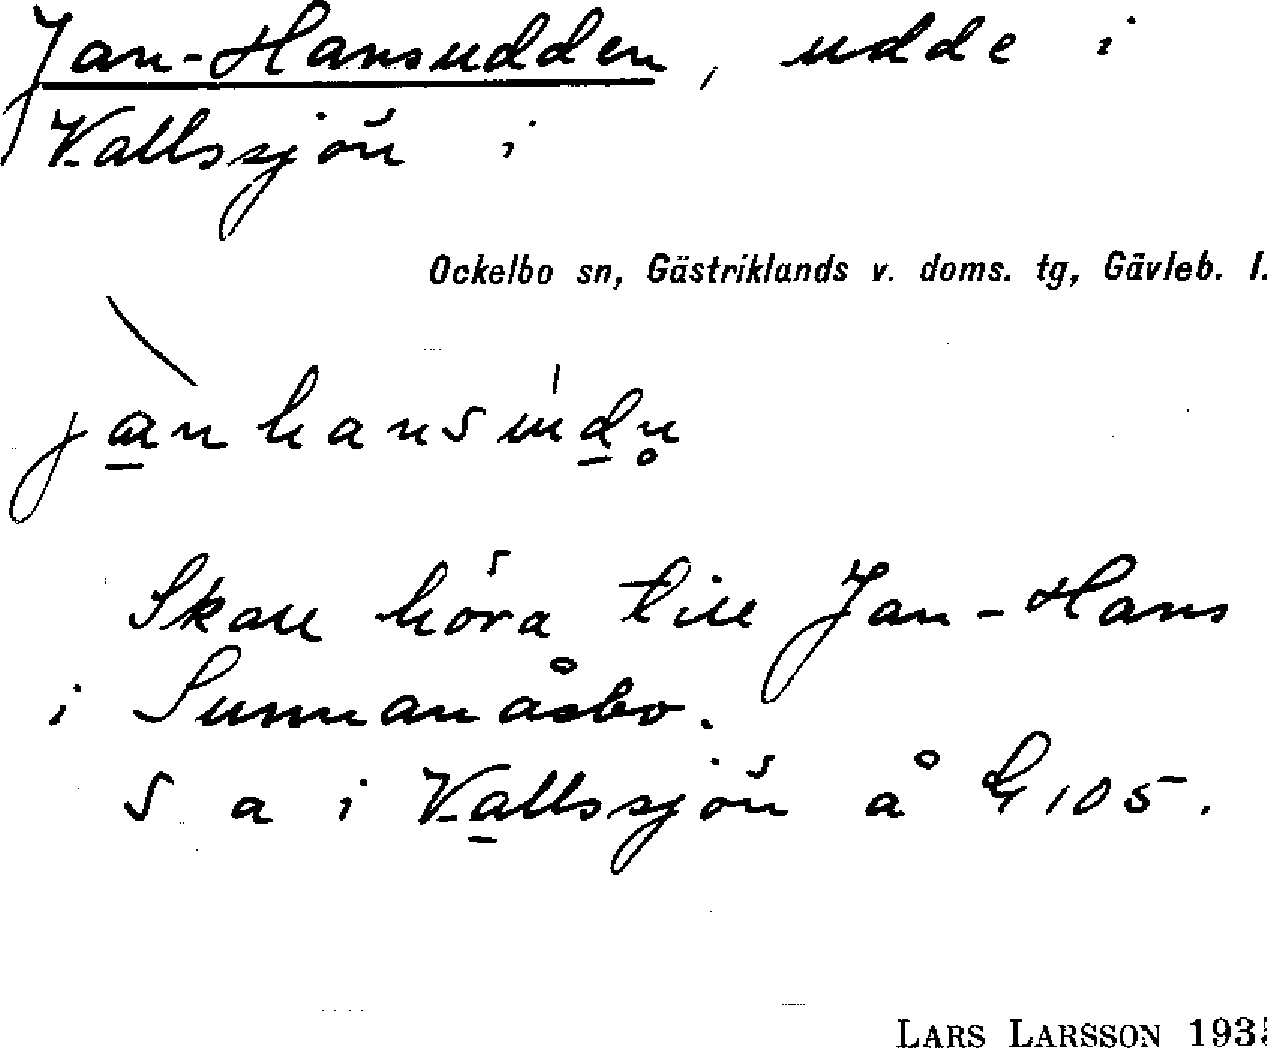 Jan-Hansudden, udde i
Vallssjön i
Ockelbo sn, Gästriklands v. doms. tg, Gävleb. l.
Skall höra till Jan-Hans
i Sunnanåsbo.
S a i Vallssjön å G 105.
LARS LARSSON 193